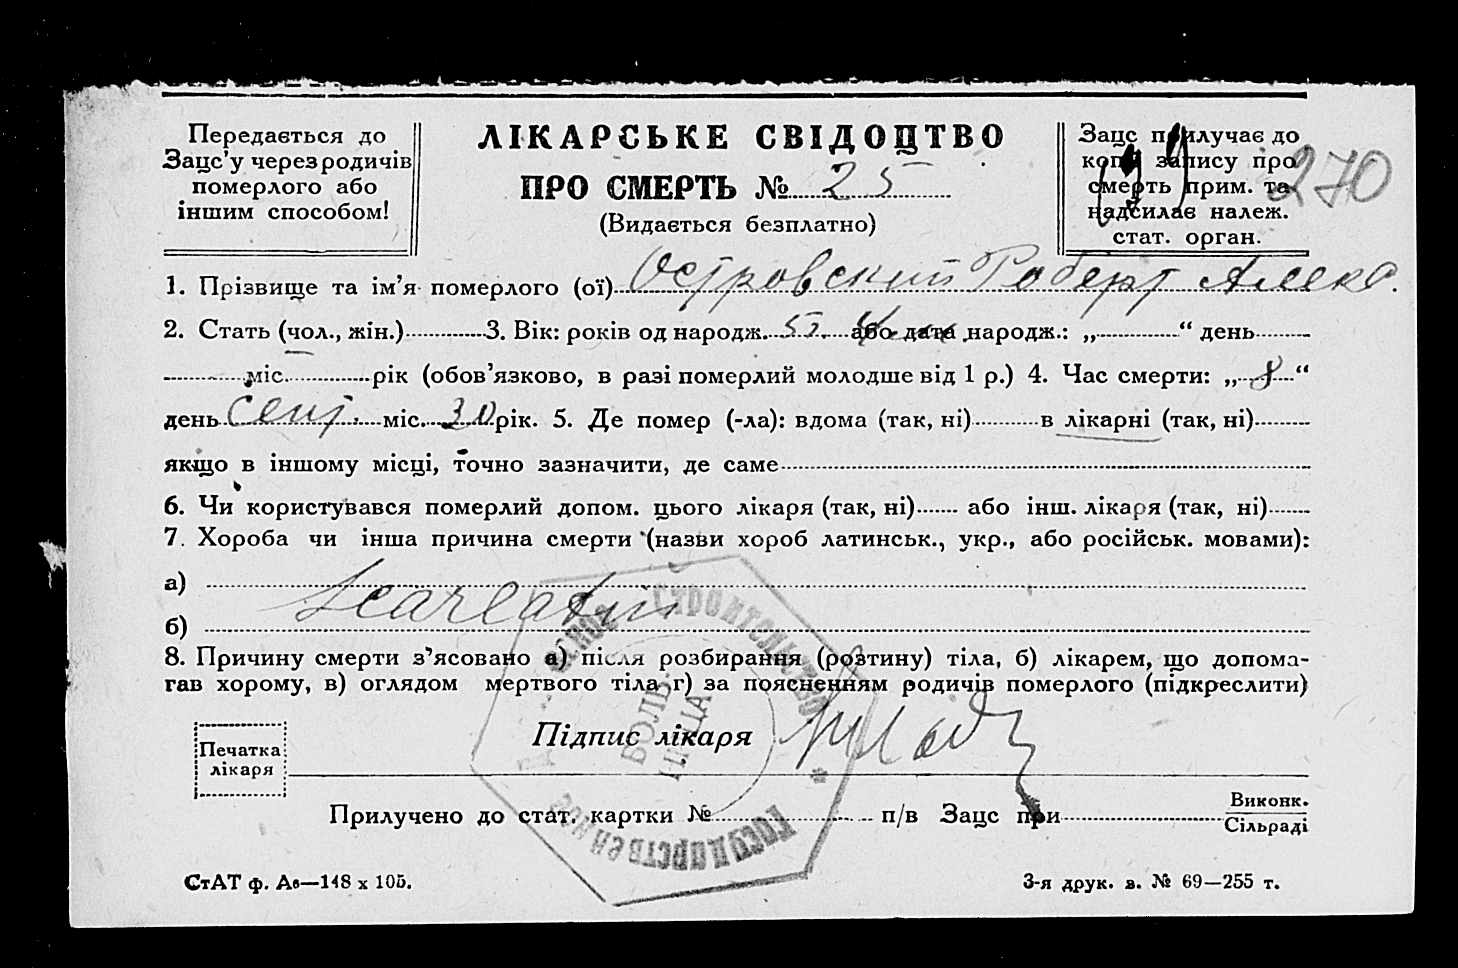 Передається до
Зацс'у через родичів
померлого або
іншим способом!
ЛІКАРСЬКЕ СВІДОЦТВО
ПРО СМЕРТЬ № 25
(Видається безплатно)
Зацс прилучає до
копії запису про
смерть прим. та
надсилає належ.
стат. орган.
270
1. Прізвище та ім'я померлого (ої) Островский Роберт Алекс.
2. Стать (чол., жін.) 3. Вік: років од народж. 5 або дата народж.: „ “ день
міс. рік (обов'язково, в разі померлий молодше від 1 р.) 4. Час смерти: „ 8 “
день Сент. міс. 30 рік. 5. Де помер (-ла): вдома (так, ні) в лікарні (так, ні)
якщо в іншому місці, точно зазначити, де саме
6. Чи користувався померлий допом. цього лікаря (так, ні) або інш. лікаря (так, ні)
7. Хороба чи інша причина смерти (назви хороб латинськ., укр., або російськ. мовами):
а)
Scarlatin
б)
8. Причину смерти з'ясовано а) після розбирання (розтину) тіла, б) лікарем, що допома-
гав хорому, в) оглядом мертвого тіла г) за поясненням родичів померлого (підкреслити)
Печатка
лікаря
Підпис лікаря
СТРОИТЕЛЬСТВО
БОЛЬ-
НИЦА
ГОСУДАРСТВЕННОЕ
Прилучено до стат. картки № п/в Зацс при Виконк.
Сільраді
СтАТ ф. А6—148 х 105.
3-я друк. з. № 69—255 т.